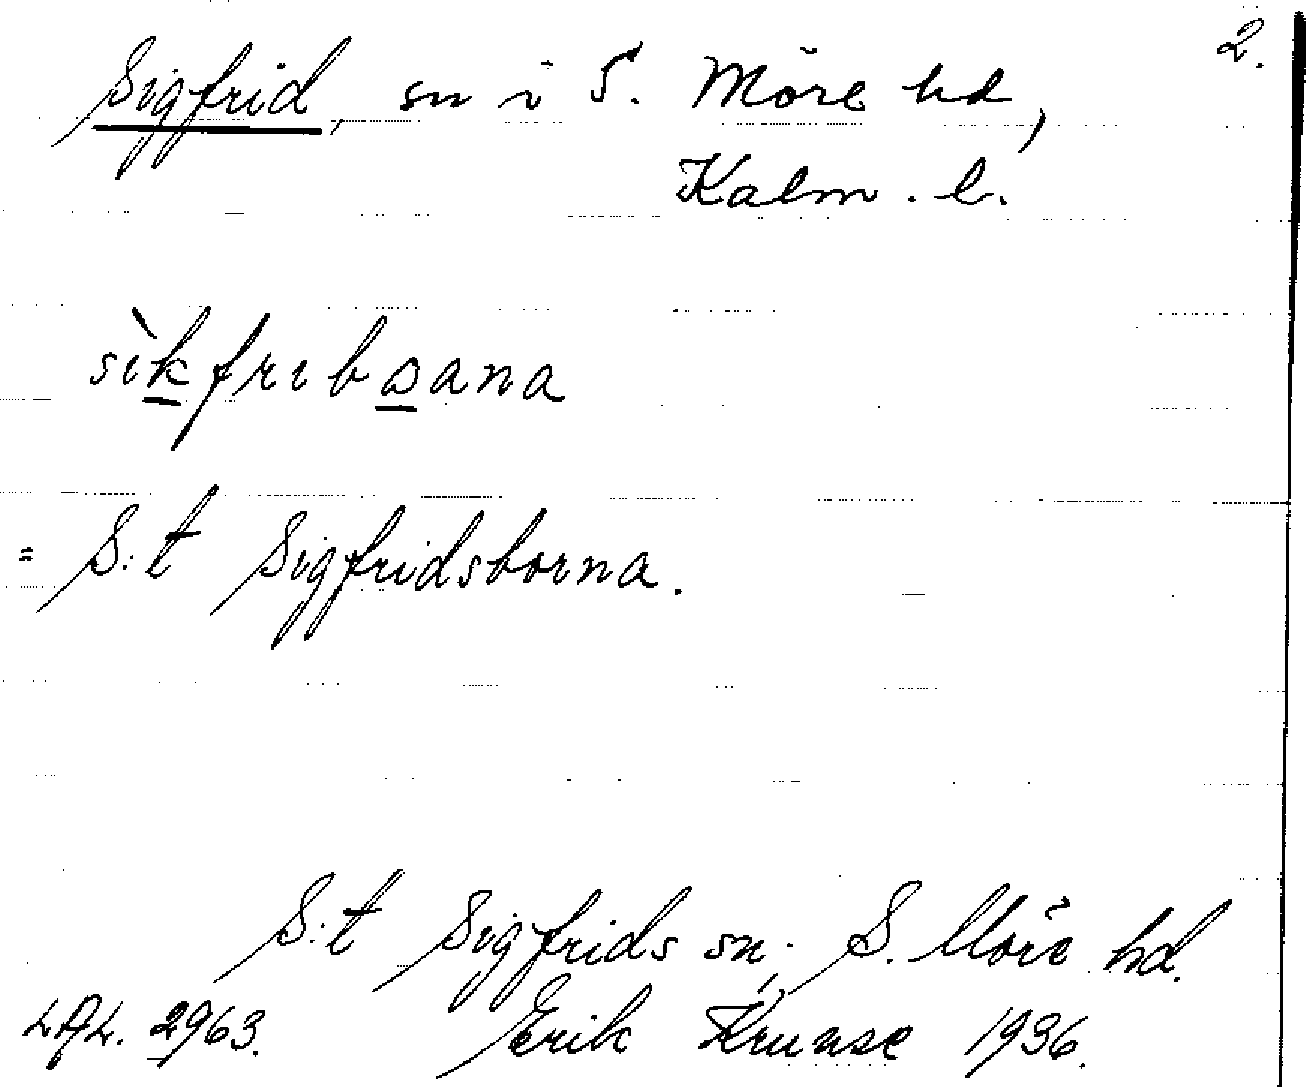 2.
Sigfrid, sn i S. Möre hd,
Kalm. l.
sìkfribɷana
= S:t Sigfridsborna.
S:t Sigfrids sn; S. Möre hd.
LAL. 2963. Erik Kruuse 1936.